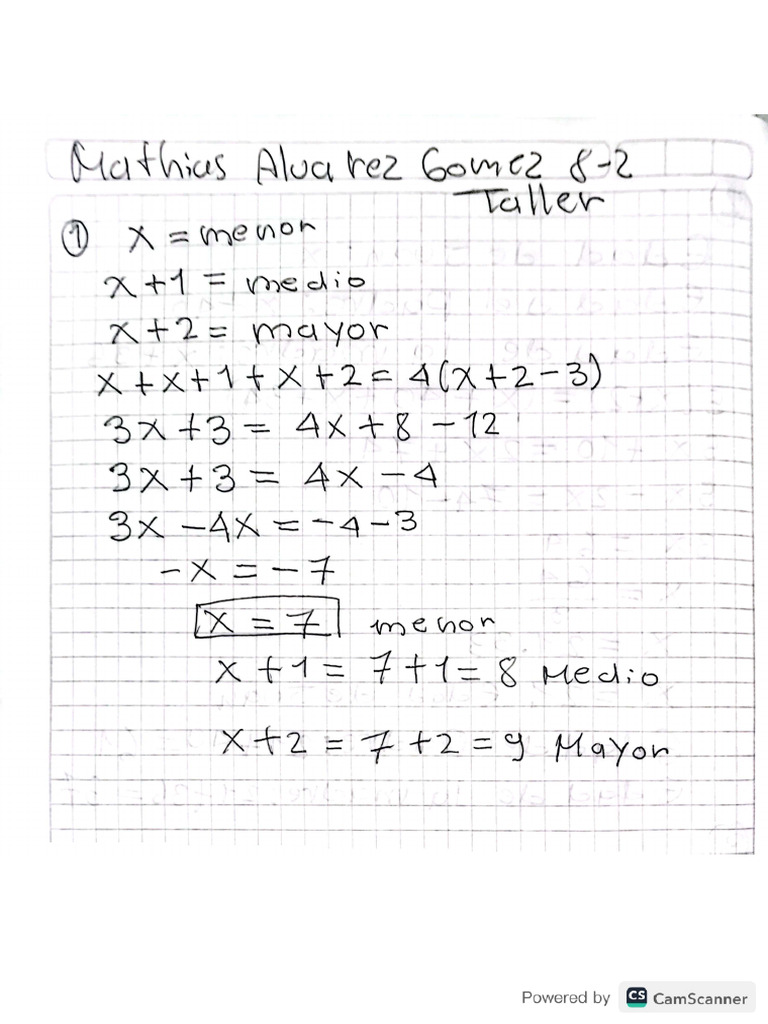 Mathias Alvarez Gomez 8-2
Taller
① x = menor
x+1 = medio
x+2 = mayor
x+x+1+x+2 = 4(x+2-3)
3x+3 = 4x+8-12
3x+3 = 4x-4
3x-4x = -4-3
-x = -7
x = 7 menor
x+1 = 7+1 = 8 Medio
x+2 = 7+2 = 9 Mayor
Powered by CS CamScanner